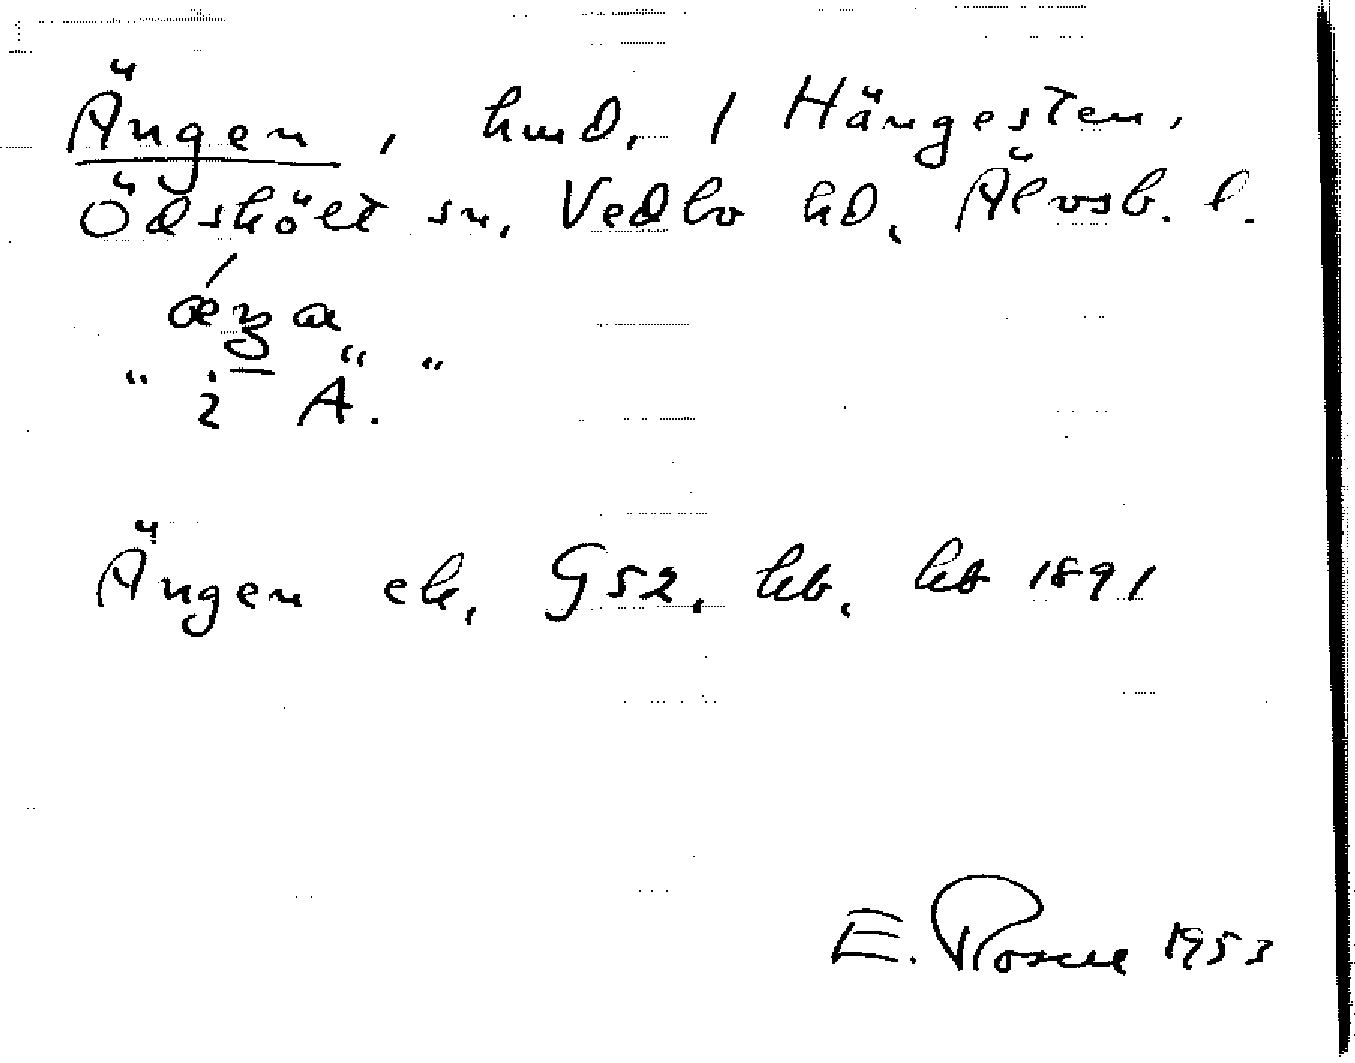 Ängen, hmd, / Hängesten,
Ödskölt sn, Vedbo hd, Älvsb. l.
" i Ä. "
Ängen ek, G52. hb, kb 1891
E. Rosell 1953